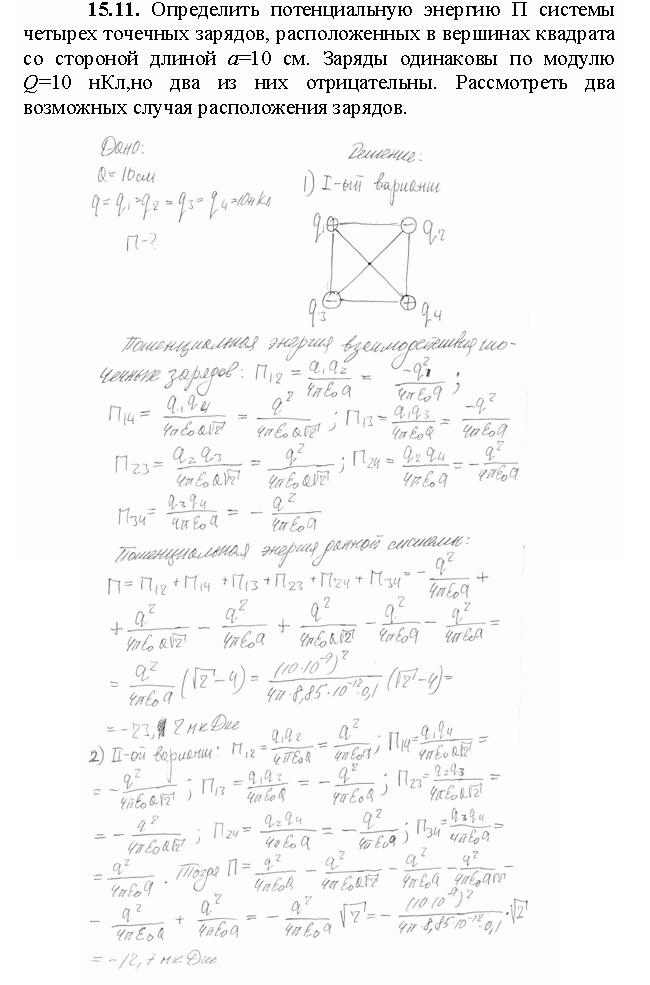 15.11. Определить потенциальную энергию П системы
четырех точечных зарядов, расположенных в вершинах квадрата
со стороной длиной a=10 см. Заряды одинаковы по модулю
Q=10 нКл,но два из них отрицательны. Рассмотреть два
возможных случая расположения зарядов.
Дано:
Решение:
a=10см
1) I-ый вариант
q=q₁=q₂=q₃=q₄=10нКл
П-?
q₁ + − q₂
q₃ − + q₄
Потенциальная энергия взаимодействия то-
чечных зарядов: П₁₂ = q₁q₂/4πε₀a = -q²/4πε₀a ;
П₁₄ = q₁q₄/4πε₀a√2 = q²/4πε₀a√2 ; П₁₃ = q₁q₃/4πε₀a = -q²/4πε₀a
П₂₃ = q₂q₃/4πε₀a√2 = q²/4πε₀a√2 ; П₂₄ = q₂q₄/4πε₀a = - q²/4πε₀a
П₃₄ = q₃q₄/4πε₀a = - q²/4πε₀a
Потенциальная энергия данной системы:
П = П₁₂ + П₁₄ + П₁₃ + П₂₃ + П₂₄ + П₃₄ = - q²/4πε₀a +
+ q²/4πε₀a√2 - q²/4πε₀a + q²/4πε₀a√2 - q²/4πε₀a - q²/4πε₀a =
= q²/4πε₀a (√2-4) = (10·10⁻⁹)²/4π·8,85·10⁻¹²·0,1 (√2-4) =
= -23,2 мкДж
2) II-ой вариант: П₁₂ = q₁q₂/4πε₀a = q²/4πε₀a ; П₁₄ = q₁q₄/4πε₀a√2 =
= - q²/4πε₀a√2 ; П₁₃ = q₁q₃/4πε₀a = - q²/4πε₀a ; П₂₃ = q₂q₃/4πε₀a√2 =
= - q²/4πε₀a√2 ; П₂₄ = q₂q₄/4πε₀a = - q²/4πε₀a ; П₃₄ = q₃q₄/4πε₀a =
= q²/4πε₀a . Тогда П = q²/4πε₀a - q²/4πε₀a√2 - q²/4πε₀a - q²/4πε₀a√2 -
- q²/4πε₀a + q²/4πε₀a = - q²/4πε₀a √2 = - (10·10⁻⁹)²/4π·8,85·10⁻¹²·0,1 ·√2
= -12,7 мкДж